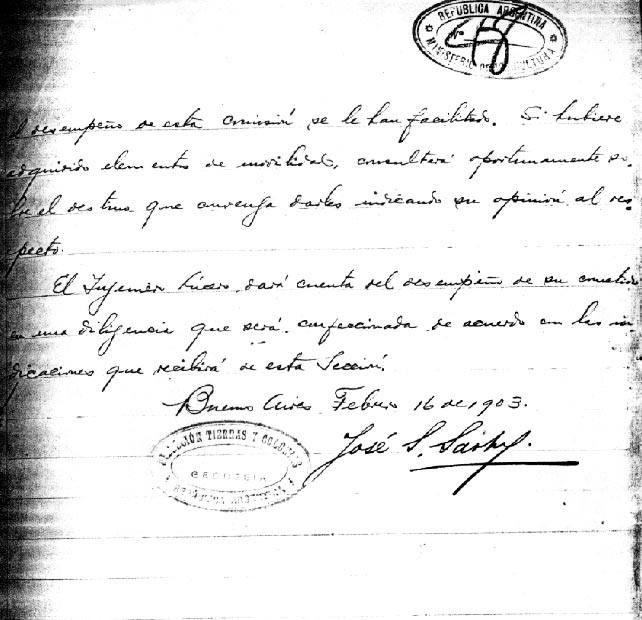 REPÚBLICA ARGENTINA
Nº
MINISTERIO DE AGRICULTURA
el desempeño de esta comisión se le han facilitado. Si hubiere
adquirido elementos de movilidad, consultará oportunamente so-
bre el destino que convenga darles indicando su opinión al res-
pecto.
El Ingeniero dará cuenta del desempeño de su cometido
en una diligencia que será confeccionada de acuerdo con las in-
dicaciones que recibirá de esta Sección.
Buenos Aires Febrero 16 de 1903.
José S.
TIERRAS Y COLONIAS
GEODESIA
REPÚBLICA ARGENTINA